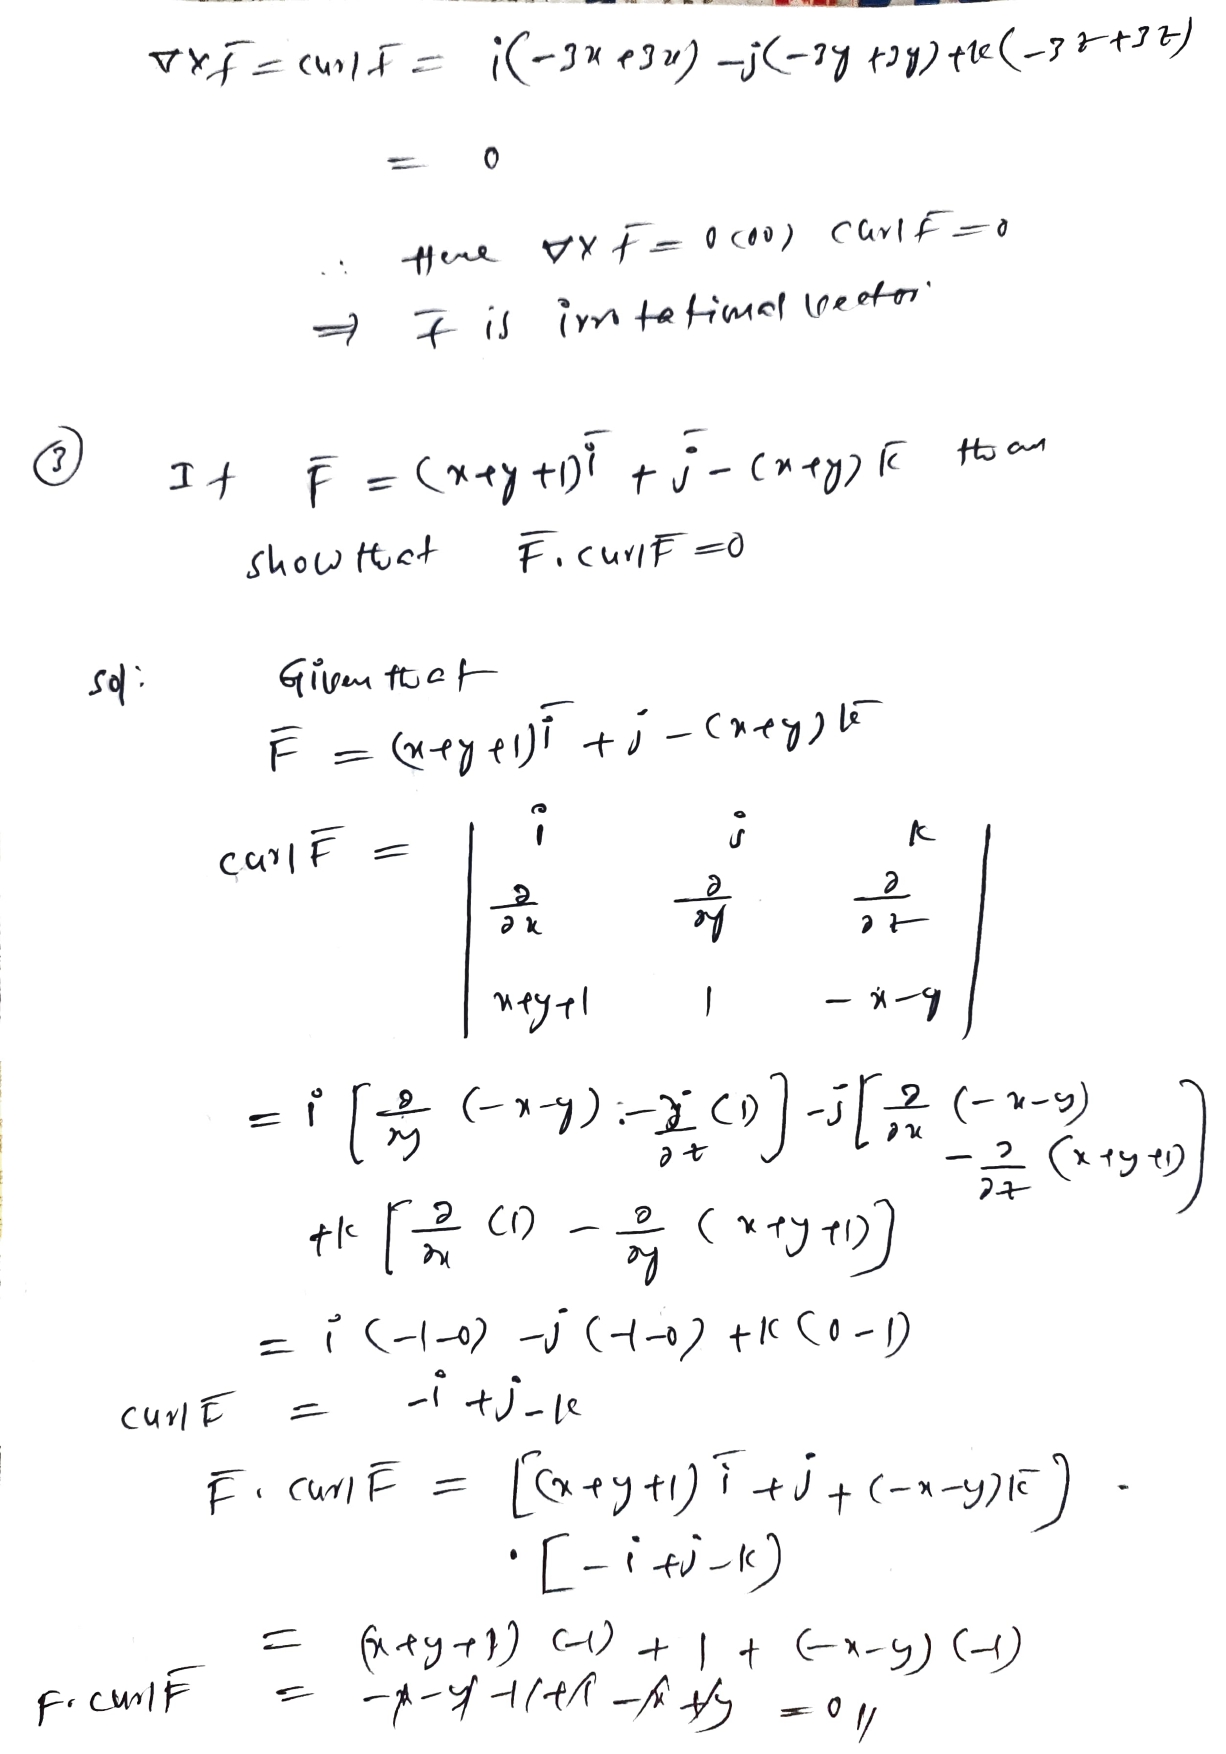 ∇×f̄ = curl f̄ = i(-3x+3x) -j(-3y+3y)+k(-3z+3z)
= 0
∴ Here ∇×f̄ = 0 (or) curl f̄ = 0
⇒ f̄ is irrotational vector.
③ If F̄ = (x+y+1)ī + j̄ - (x+y)k̄ then
show that F̄. curl F̄ = 0
sol: Given that
F̄ = (x+y+1)ī + j - (x+y)k̄
curl F̄ = | i j k |
| ∂/∂x ∂/∂y ∂/∂z |
| x+y+1 1 -x-y |
= i [∂/∂y (-x-y) - ∂/∂z (1)] -j [∂/∂x (-x-y)
- ∂/∂z (x+y+1)]
+k [∂/∂x (1) - ∂/∂y (x+y+1)]
= i (-1-0) -j (-1-0) +k (0-1)
curl F̄ = -i +j-k
F̄. curl F̄ = [(x+y+1) ī +j + (-x-y)k̄] .
. [-i+j-k)
= (x+y+1) (-1) + 1 + (-x-y) (-1)
F. curl F̄ = -x-y-1+1-x+y = 0 //